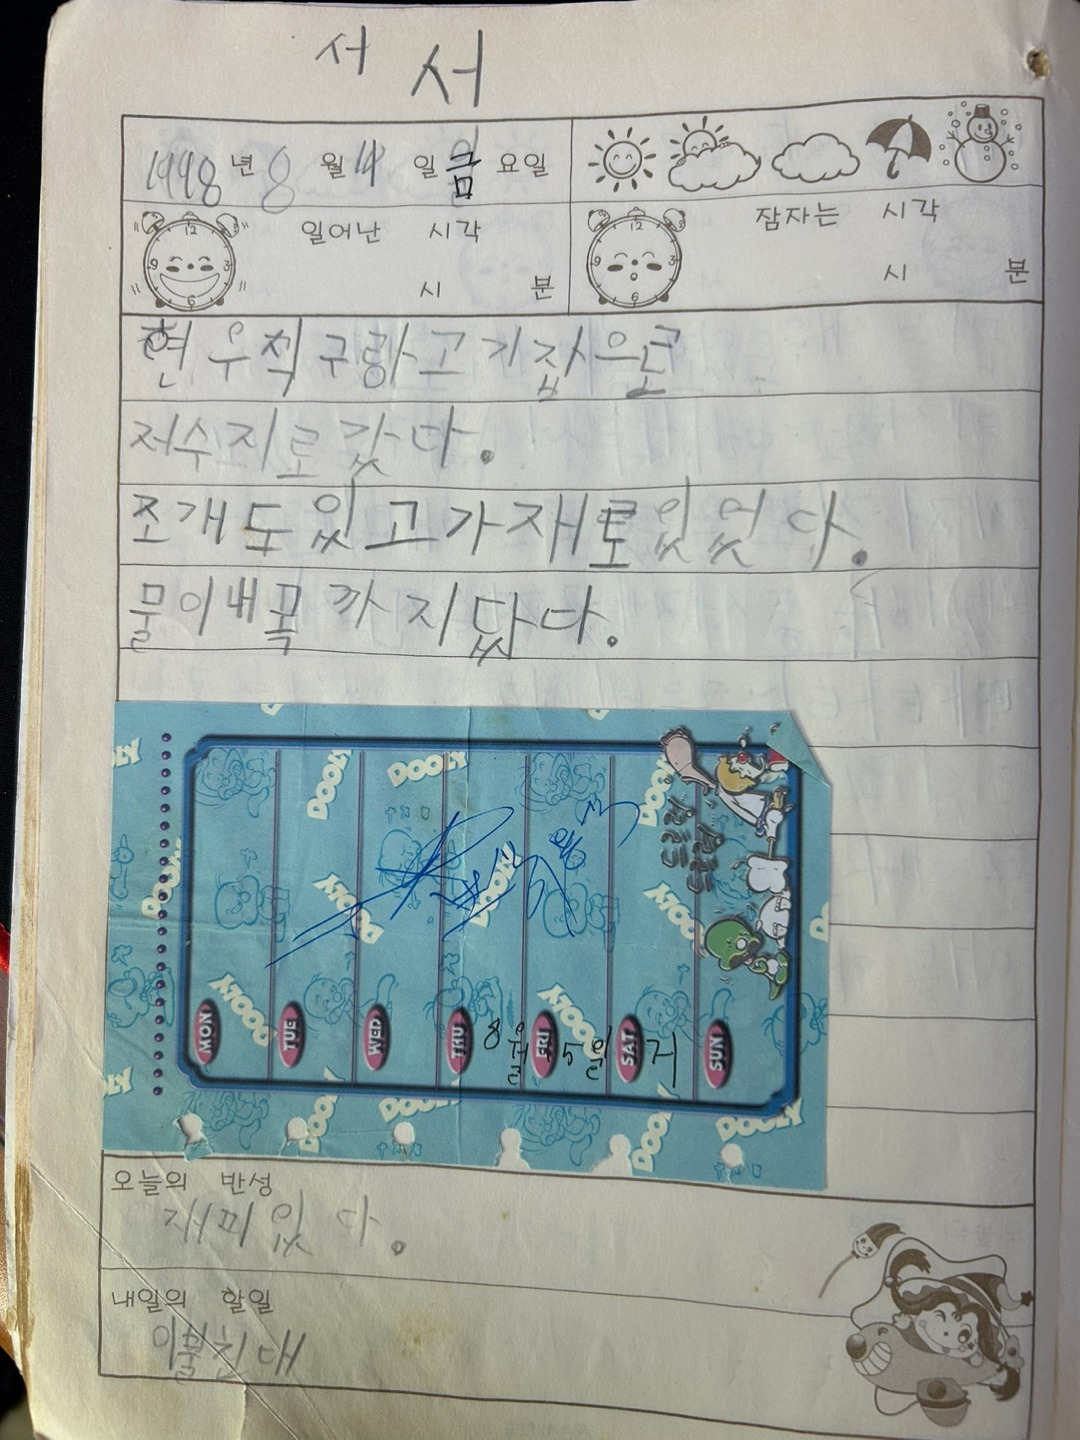 서 서
1998년 8월 14일 금요일
일어난 시각
시 분
잠자는 시각
시 분
현우식구랑고기잡으로
저수지로갔다.
조개도있고가재로있었다.
물이내목까지닸다.
DOOLY
MON
TUE
WED
THU
FRI
SAT
SUN
8월 15일 거
오늘의 반성
재미있다.
내일의 할일
이불친대